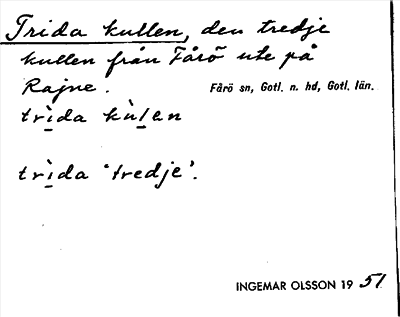 Trida kullen, den tredje
kullen från Fårö ute på
Rajne.
Fårö sn, Gotl. n. hd, Gotl. län.
trì̱da kùḻen
trì̱da 'tredje'.
INGEMAR OLSSON 19 51